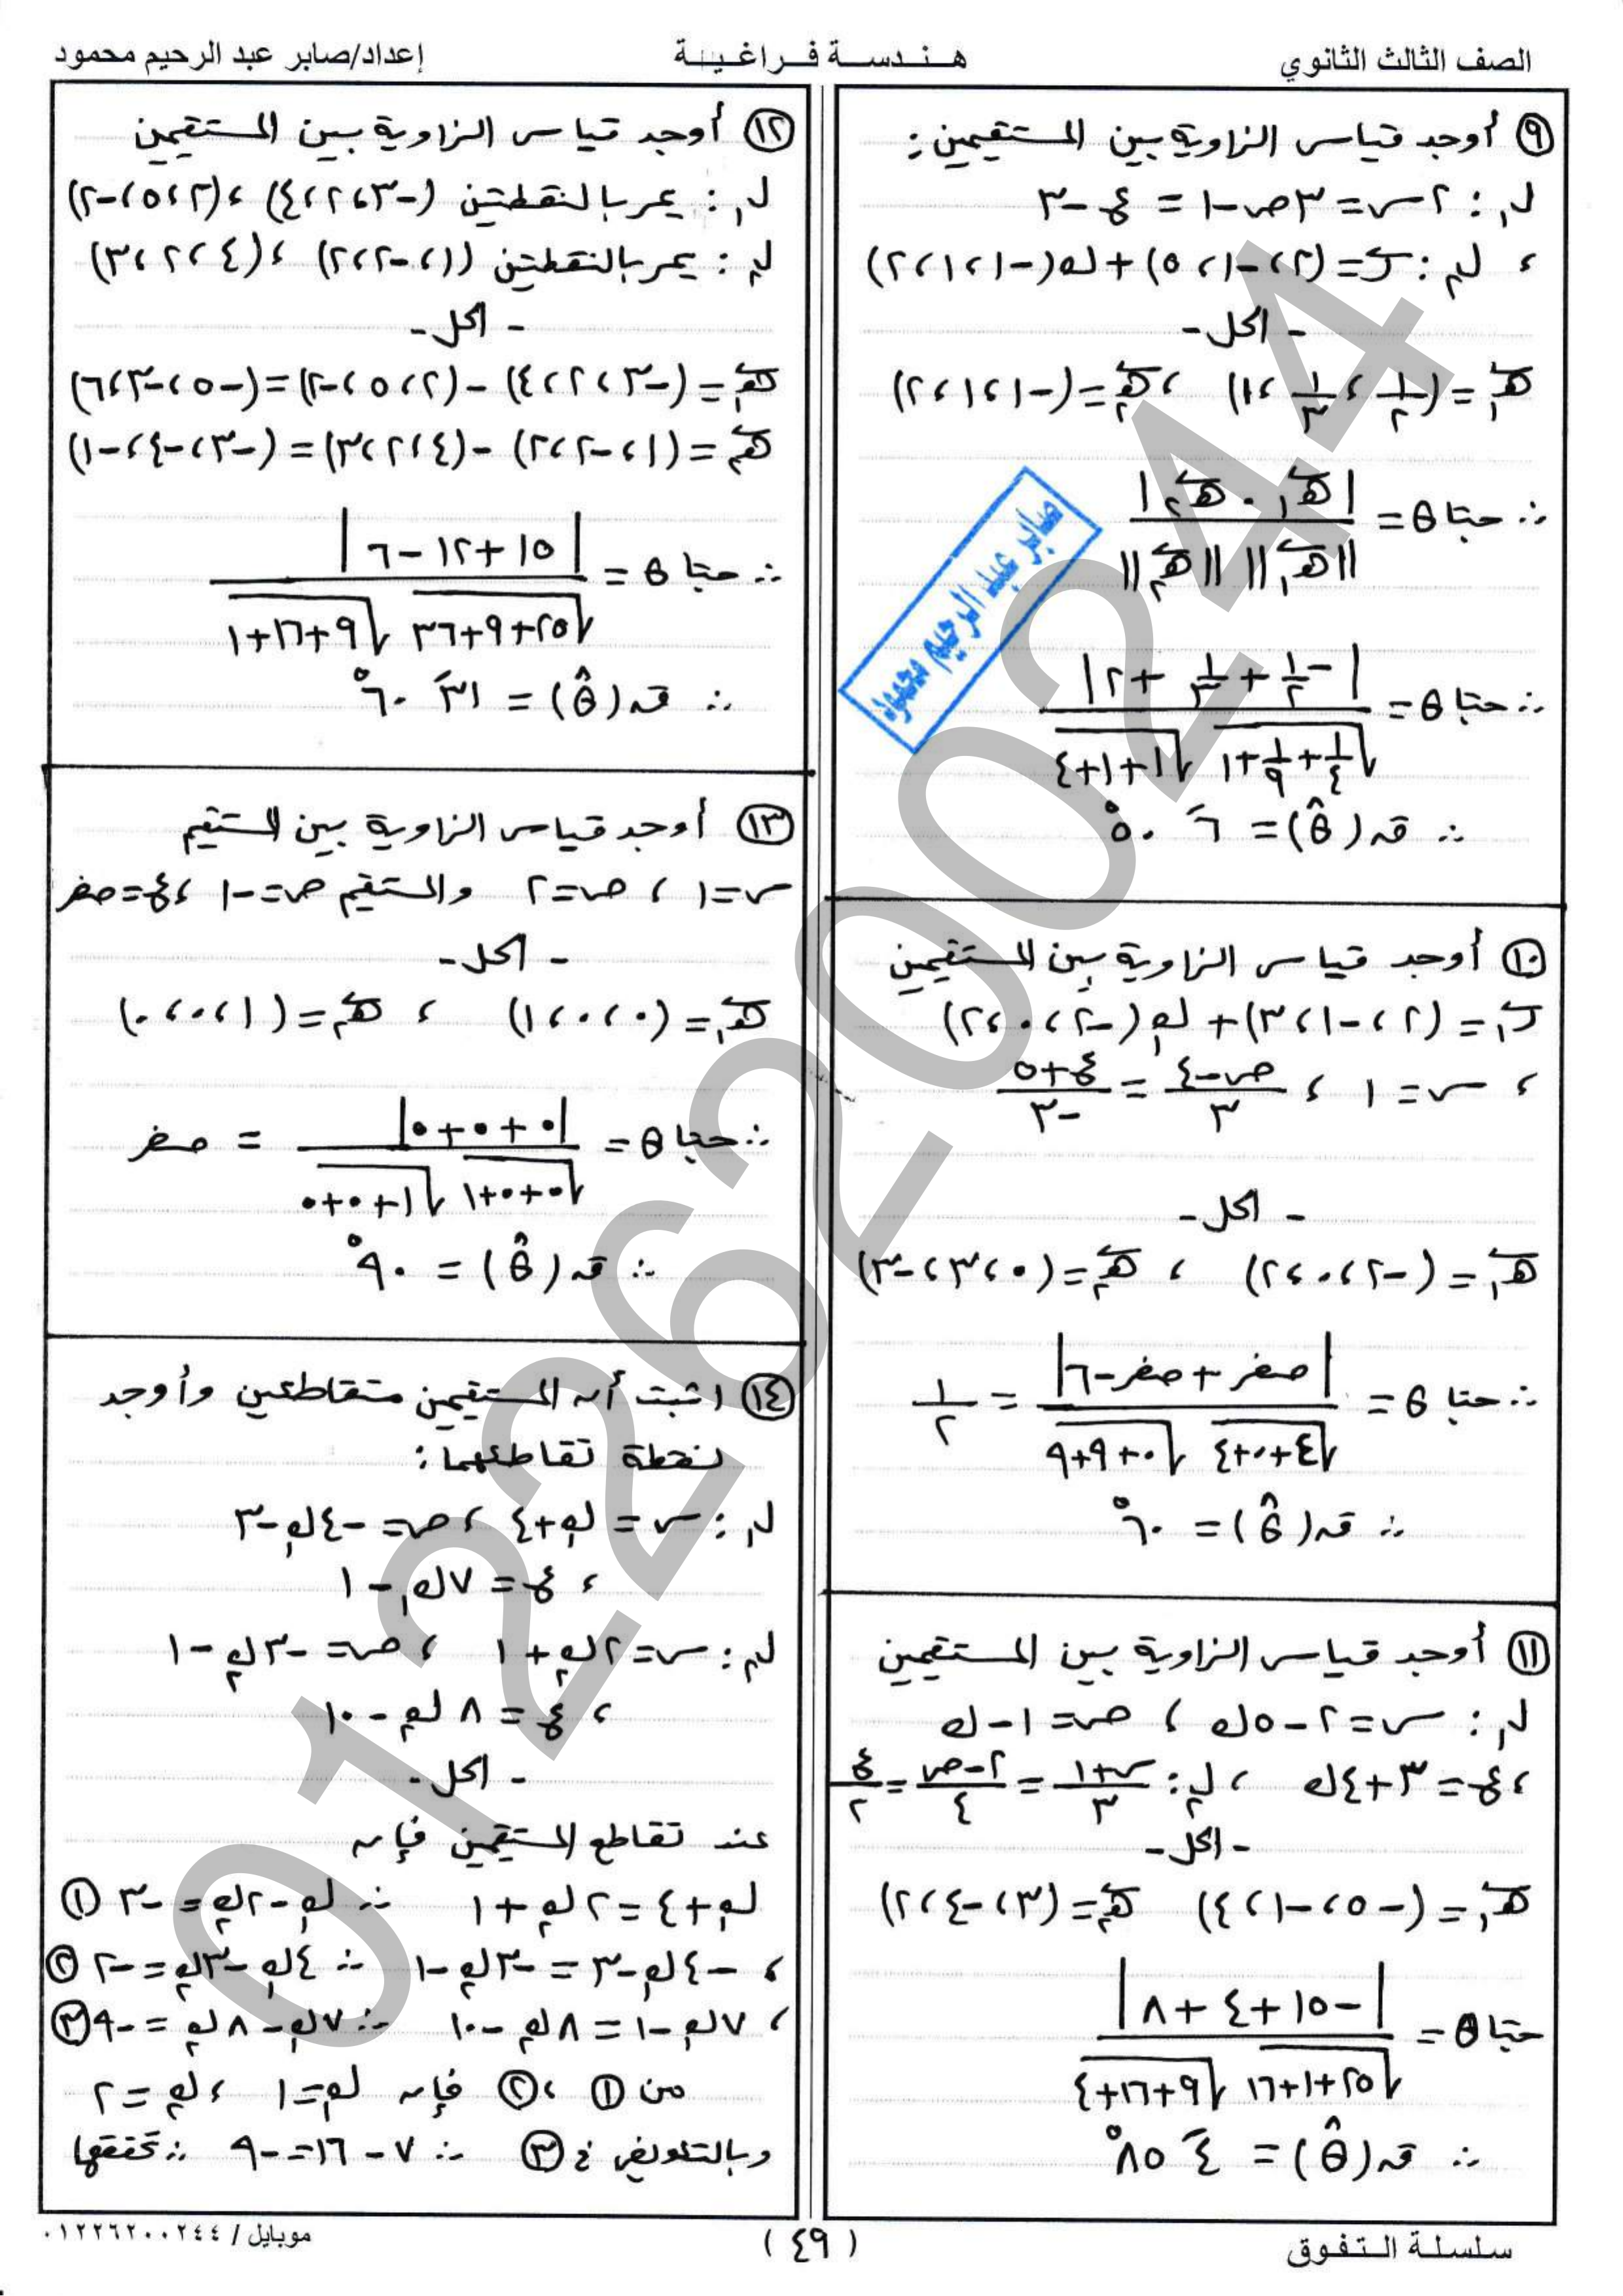 الصف الثالث الثانوي
هـنـدسـة فـراغـيـة
إعداد/صابر عبد الرحيم محمود
٩ أوجد قياس الزاوية بين المستقيمين:
ل₁ : ٢س = ٣ص-١ = ع-٣
، ل₂ : ر = (٢، -١، ٥) + ك(-١، ١، ٢)
- الحل -
هـ₁ = (١/٢ ، ١/٣ ، ١) ، هـ₂ = (-١، ١، ٢)
∴ حتا θ = |هـ₁ . هـ₂| / ||هـ₁|| ||هـ₂||
∴ حتا θ = |-١/٢ + ١/٣ + ٢| / √(١/٤ + ١/٩ + ١) √(١+١+٤)
∴ قه(θ̂) = ٦َ ٥٠°
صابر عبد الرحيم محمود
١٠ أوجد قياس الزاوية بين المستقيمين
ر₁ = (٢، -١، ٣) + ك₁(-٢، ٠، ٢)
، س = ١ ، (ص-٤)/٣ = (ع+٥)/-٣
- الحل -
هـ₁ = (-٢، ٠، ٢) ، هـ₂ = (٠، ٣، -٣)
∴ حتا θ = |صفر + صفر - ٦| / √(٤+٠+٤) √(٠+٩+٩) = ١/٢
∴ قه(θ̂) = ٦٠°
١١ أوجد قياس الزاوية بين المستقيمين
ل₁ : س = ٢-٥ك ، ص = ١-ك
، ع = ٣+٤ك ، ل₂ : (س+١)/٣ = (٢-ص)/٤ = ع/٢
- الحل -
هـ₁ = (-٥، -١، ٤) هـ₂ = (٣، -٤، ٢)
حتا θ = |-١٥ + ٤ + ٨| / √(٢٥+١+١٦) √(٩+١٦+٤)
∴ قه(θ̂) = ٤َ ٨٥°
١٢ أوجد قياس الزاوية بين المستقيمين
ل₁ : يمر بالنقطتين (-٣، ٢، ٤) ، (٢، ٥، -٢)
ل₂ : يمر بالنقطتين (١، -٢، ٢) ، (٤، ٢، ٣)
- الحل -
هـ₁ = (-٣، ٢، ٤) - (٢، ٥، -٢) = (-٥، -٣، ٦)
هـ₂ = (١، -٢، ٢) - (٤، ٢، ٣) = (-٣، -٤، -١)
∴ حتا θ = |١٥ + ١٢ - ٦| / √(٢٥+٩+٣٦) √(٩+١٦+١)
∴ قه(θ̂) = ٣١َ ٦٠°
١٣ أوجد قياس الزاوية بين المستقيم
س = ١ ، ص = ٢ والمستقيم ص = -١ ، ع = صفر
- الحل -
هـ₁ = (٠، ٠، ١) ، هـ₂ = (١، ٠، ٠)
∴ حتا θ = |٠ + ٠ + ٠| / √(٠+٠+١) √(١+٠+٠) = صفر
∴ قه(θ̂) = ٩٠°
١٤ اثبت أن المستقيمين متقاطعين وأوجد
نقطة تقاطعهما:
ل₁ : س = ك₁+٤ ، ص = -٤ك₁-٣
، ع = ٧ك₁ - ١
ل₂ : س = ٢ك₂+١ ، ص = -٣ك₂-١
، ع = ٨ك₂ - ١٠
- الحل -
عند تقاطع المستقيمين فإن
ك₁+٤ = ٢ك₂+١ ∴ ك₁-٢ك₂ = -٣ ①
، -٤ك₁-٣ = -٣ك₂-١ ∴ ٤ك₁-٣ك₂ = -٢ ②
، ٧ك₁-١ = ٨ك₂-١٠ ∴ ٧ك₁-٨ك₂ = -٩ ③
من ① ، ② فإن ك₁=١ ، ك₂=٢
وبالتعويض في ③ ∴ ٧-١٦=-٩ ∴ تحققها
سلسلة الـتـفـوق
( ٤٩ )
موبايل / ٠١٢٢٦٢٠٠٢٤٤
01226200244